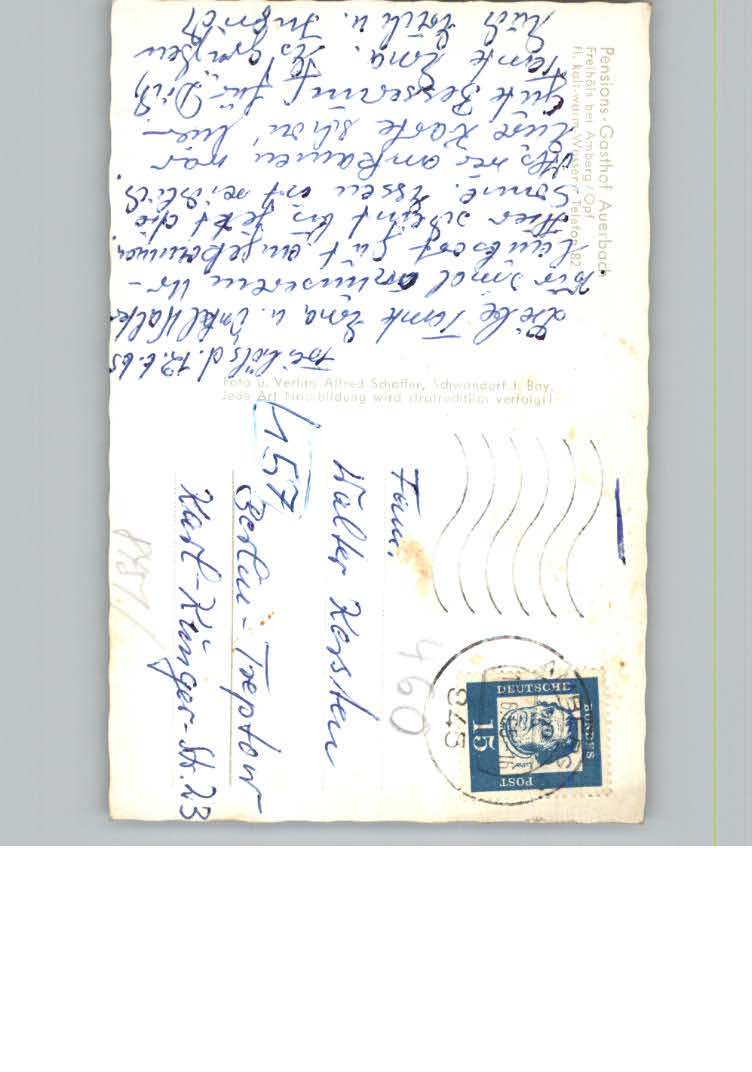 Pensions-Gasthof Auerbach
Freihöls bei Amberg/Opf.
Fl. kalt-warm Wasser · Telefon 82
Freihöls d. 12.6.65
Liebe Tante Erna u. Onkel Walter
Wir sind an unserem Ur-
laubsort gut angekommen.
Hier scheint bis jetzt die
Sonne. Essen ist reichlich.
Als wir ankamen war
Eure Karte schon hier
gute Besserung für Dich
Tante Erna. Es grüßen
Euch u. Ingrid
Foto u. Verlag Alfred Schaffer, Schwandorf i. Bay.
Jede Art Nachbildung wird strafrechtlich verfolgt!
Fam.
Walter Kersten
Berlin-Treptow
157
Karl-Kunger-St. 23
460
8451
DEUTSCHE
BUNDES
POST
15
845